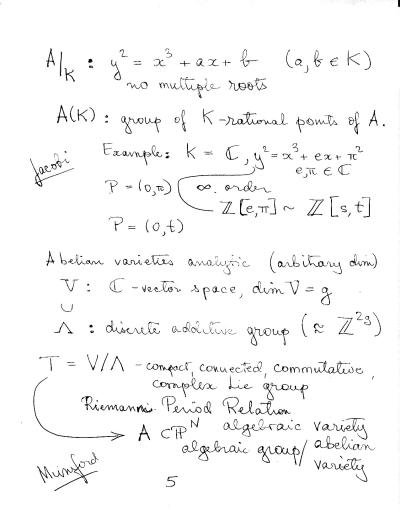 A/K : y² = x³ + ax + b (a, b ∈ K)
no multiple roots
A(K) : group of K-rational points of A.
Jacobi
Example: K = ℂ, y² = x³ + ex + π²
e, π ∈ ℂ
P = (0, π) ∞ order
ℤ[e, π] ~ ℤ[s, t]
P = (0, t)
Abelian varieties analytic (arbitrary dim)
V : ℂ-vector space, dim V = g
∪
Λ : discrete additive group (≈ ℤ²ᵍ)
T = V/Λ - compact, connected, commutative,
complex Lie group
Riemann Period Relation
A ⊂ ℙᴺ algebraic variety
algebraic group / abelian
variety
Mumford
5